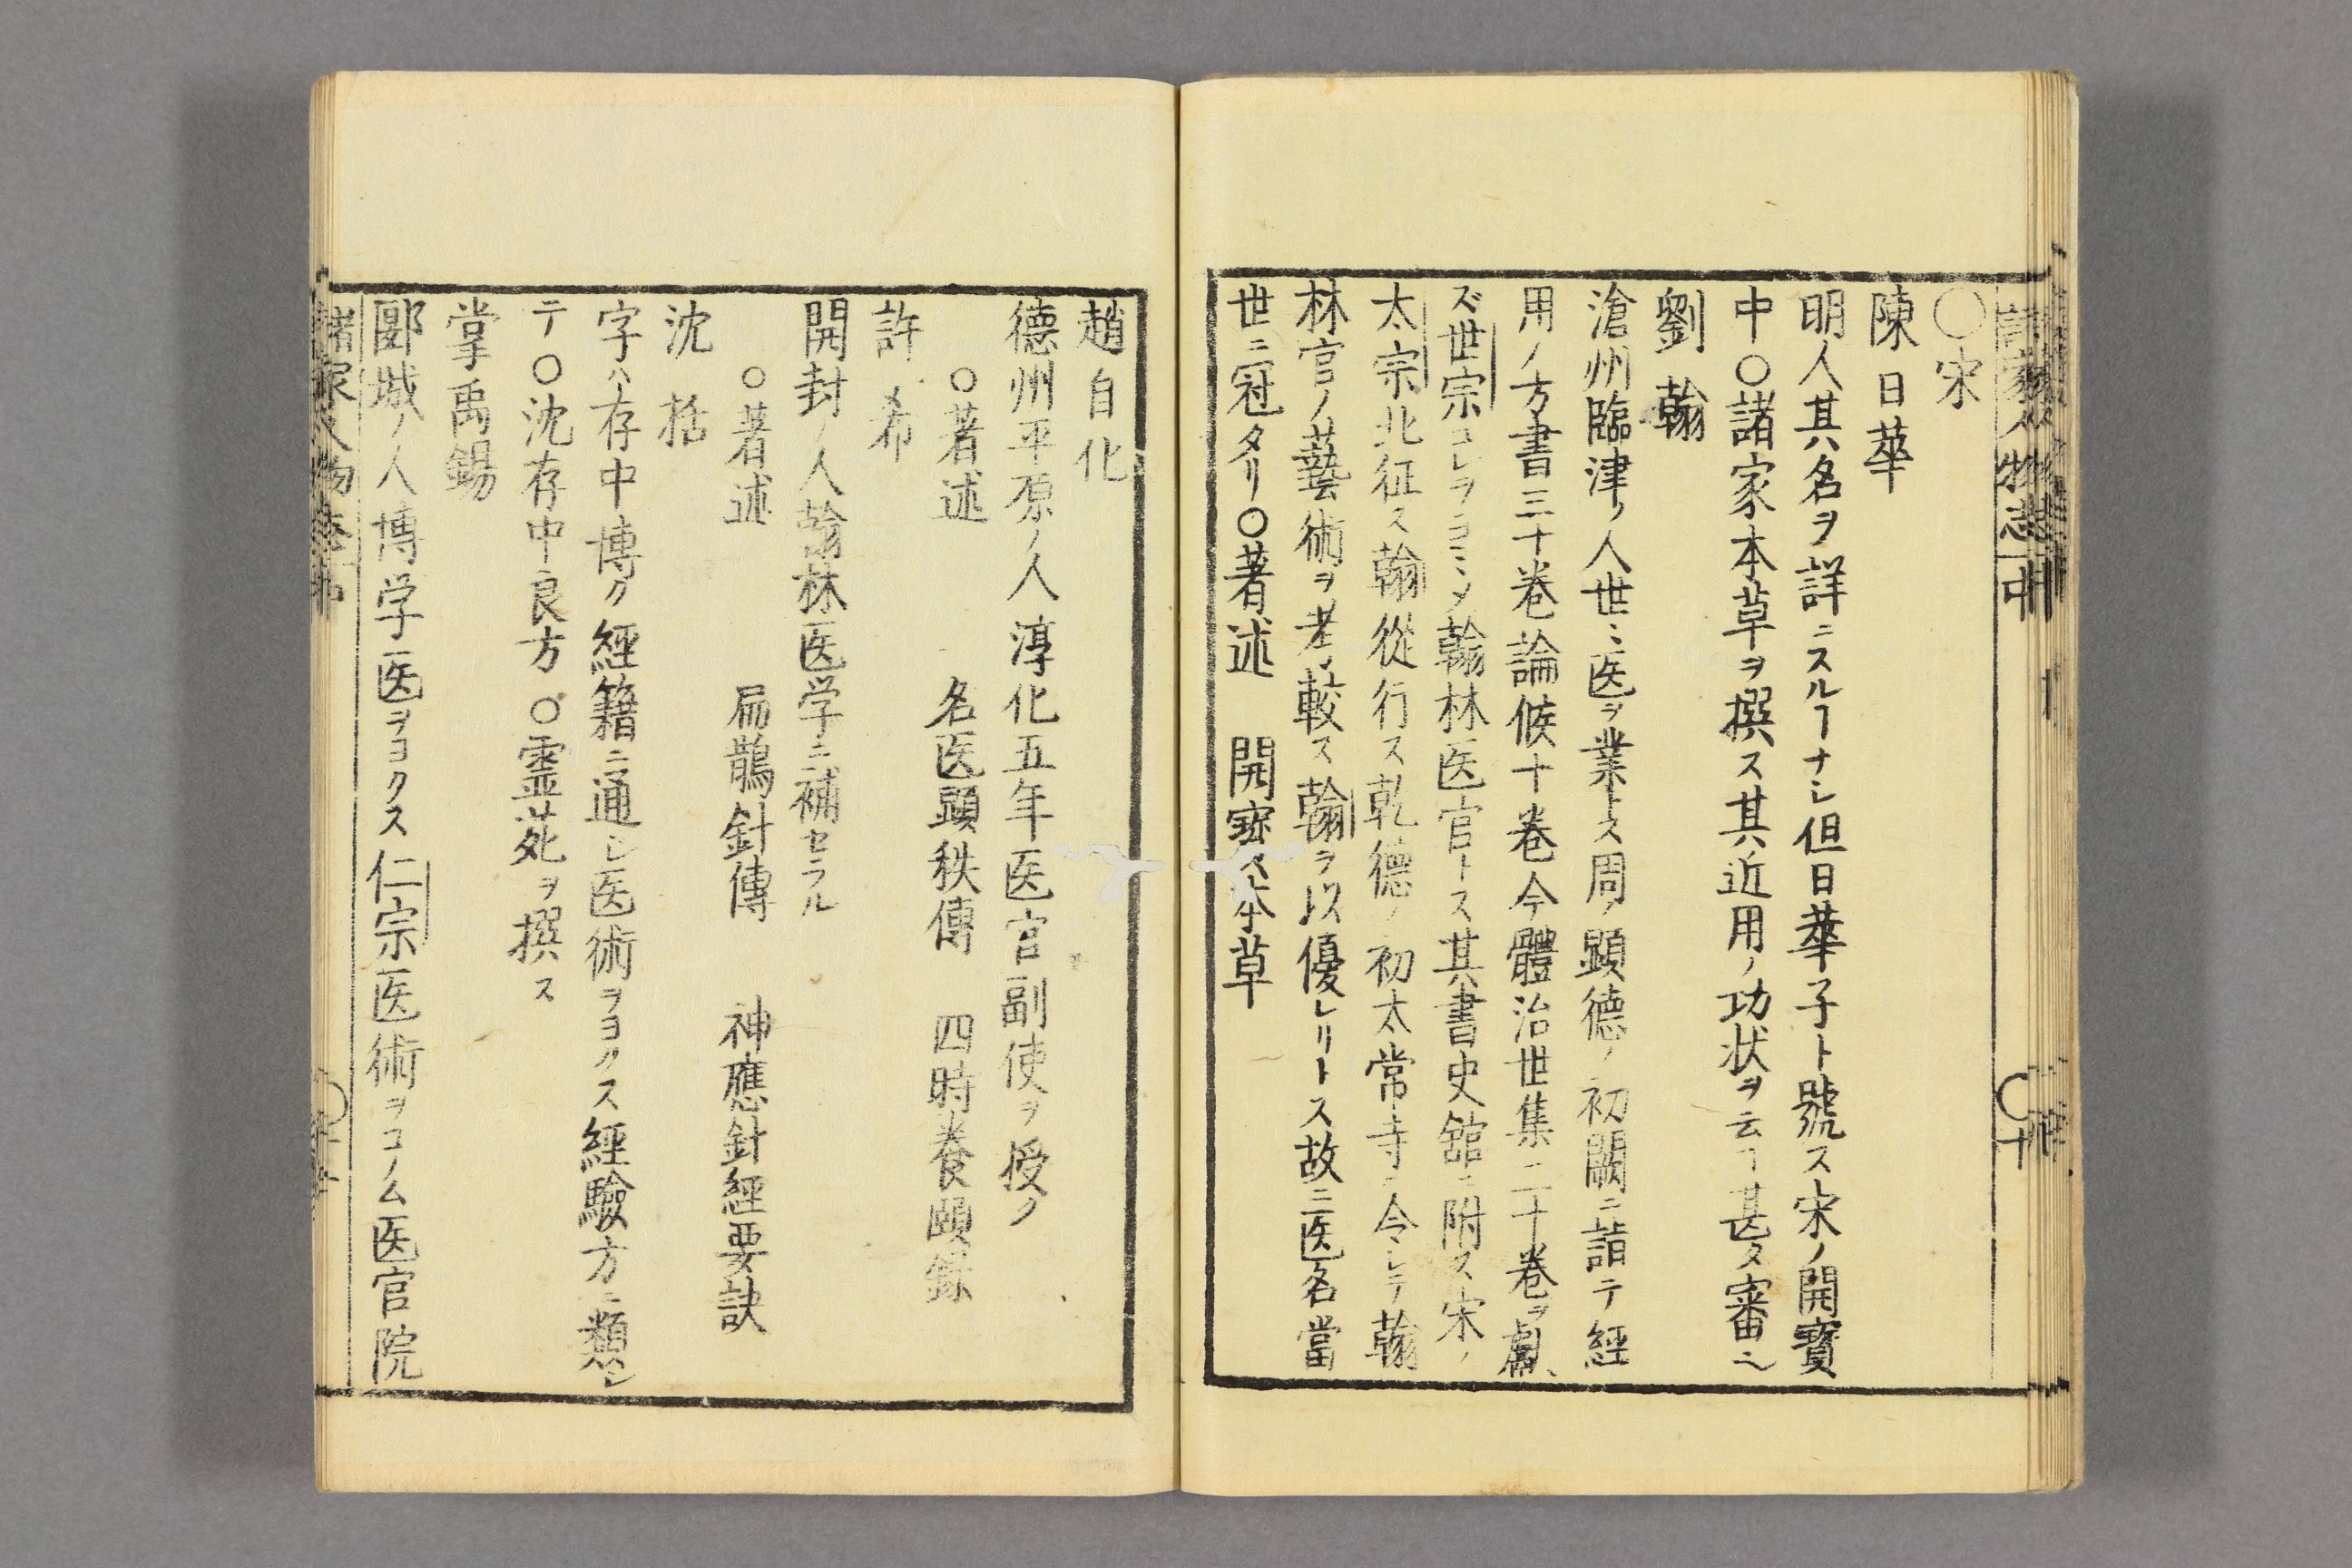 ○宋
陳日華
明人其名ヲ詳ニスルヿナシ但日華子ト號ス宋ノ開寳
中○諸家本草ヲ撰ス其近用ノ功状ヲ云ヿ甚タ審ニ
劉翰
滄州臨津ノ人世ミ医ヲ業トス周ノ顕徳ノ初闕ニ詣テ經
用ノ方書三十巻論候十巻今體治世集二十巻ヲ獻
ズ世宗コレヲヨミシメ翰林医官トス其書史舘ニ附ス宋ノ
太宗北征ス翰從行ス乾德ノ初太常寺ニ令シテ翰
林官ノ藝術ヲ考較ス翰ヲ以優レリトス故ニ医名當
世ニ冠タリ○著述 開寳本草
趙自化
德州平原ノ人淳化五年医官副使ヲ授ク
○著述 名医顕秩傳 四時養頤錄
許希
開封ノ人翰林医学ニ補セラル
○著述 扁鵲針傳 神應針經要訣
沈括
字ハ存中博ク經籍ニ通シ医術ヲヨクス經驗方ニ類シ
テ○沈存中良方○霊苑ヲ撰ス
掌禹錫
郾城ノ人博学医ヲヨクス仁宗医術ヲコノム医官院